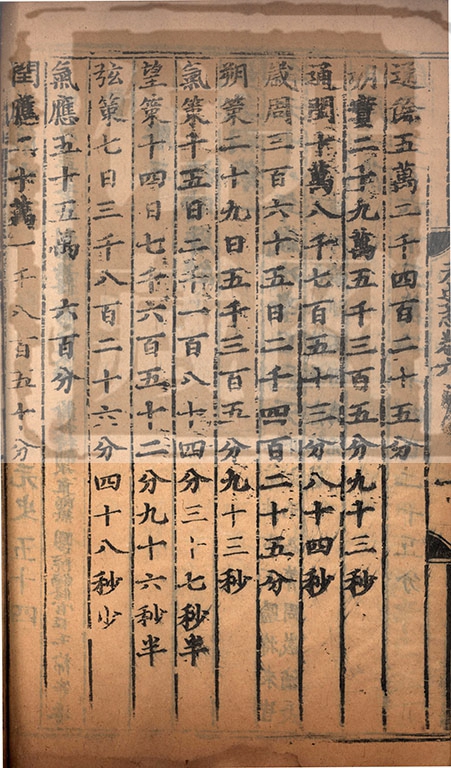 元史志卷六
通餘五萬二千四百二十五分
朔實二十九萬五千三百五分九十三秒
通閏十萬八千七百五十三分八十四秒
歲周三百六十五日二千四百二十五分
朔策二十九日五千三百五分九十三秒
氣策十五日二千一百八十四分三十七秒半
望策十四日七千六百五十二分九十六秒半
弦策七日三千八百二十六分四十八秒少
氣應五十五萬六百分
閏應二十萬一千八百五十分
元史五十四